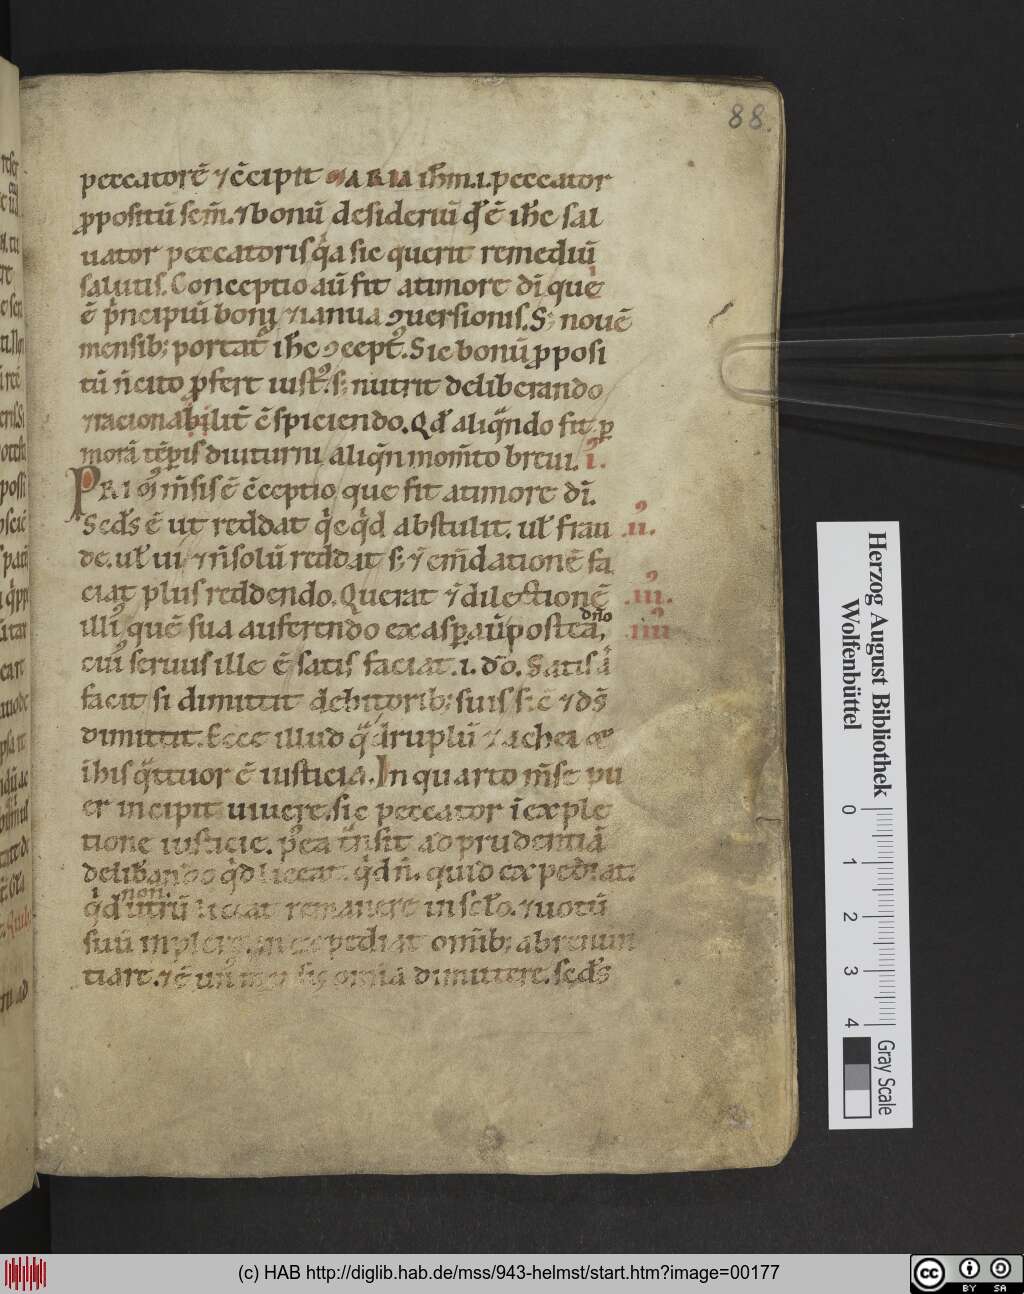 88.
peccatorē ⁊ c̄cipit MARIA ih̄m.i.peccator
ꝓpositū sem̄.⁊bonū desideriū qd̓ ē ih̄c sal
uator peccatoris q̓a sic querit remediū
salutis. Conceptio aū fit atimore dī que
ē p̓ncipiū boni ⁊ianua ꝯuersionis. S; nouē
mensib; portat᷑ ihc ꝯcept᷒. Sic bonū ꝓposi
tū n̄ cito ꝓfert iust᷒. s; nutrit deliberando
⁊racionabilit̄ c̄spiciendo. Qd̓ aliqn̄do fit ꝑ
morā tēꝑis diuturni aliqn̄ mom̄to breui. i.
PRIM᷒ m̄sis ē c̄ceptio que fit atimore dī.
Secd̄s ē ut reddat q̓ eq̓d abstulit. ul̓ frau .ii.
de. ul̓ ui ⁊ n̄solū reddat s; ⁊ em̄dationē fa
ciat plus reddendo. Querat ⁊ dilectionē .iii.
illi᷒ quē sua auferendo exasꝑauit postea, dn̄o iiii
cui᷒ seruus ille ē satis faciat.i. dō. Satis ā
facit si dimittit debitorib; suis s; ē ⁊ ds̄
dimittit. Ecce illud q̓druplū ⁊achei
ihis q̓ttuor ē iusticia. In quarto m̄se pu
er incipit uiuere. sic peccator ī exple
tione iusticie. p᷒ea t̓nsit ad prudentiā
delib̄ando q̓d liceat. q̓d n̄. quid expediat.
q̓d non. utrū liceat remanere in sclo. ⁊ uotū
suū inplere. an expediat om̄ib; abrenun
tiare. ⁊ē un᷒ om̄ia dimittere. secd̄s
Herzog August Bibliothek
Wolfenbüttel
0 1 2 3 4
Gray Scale
(c) HAB http://diglib.hab.de/mss/943-helmst/start.htm?image=00177
cc BY SA